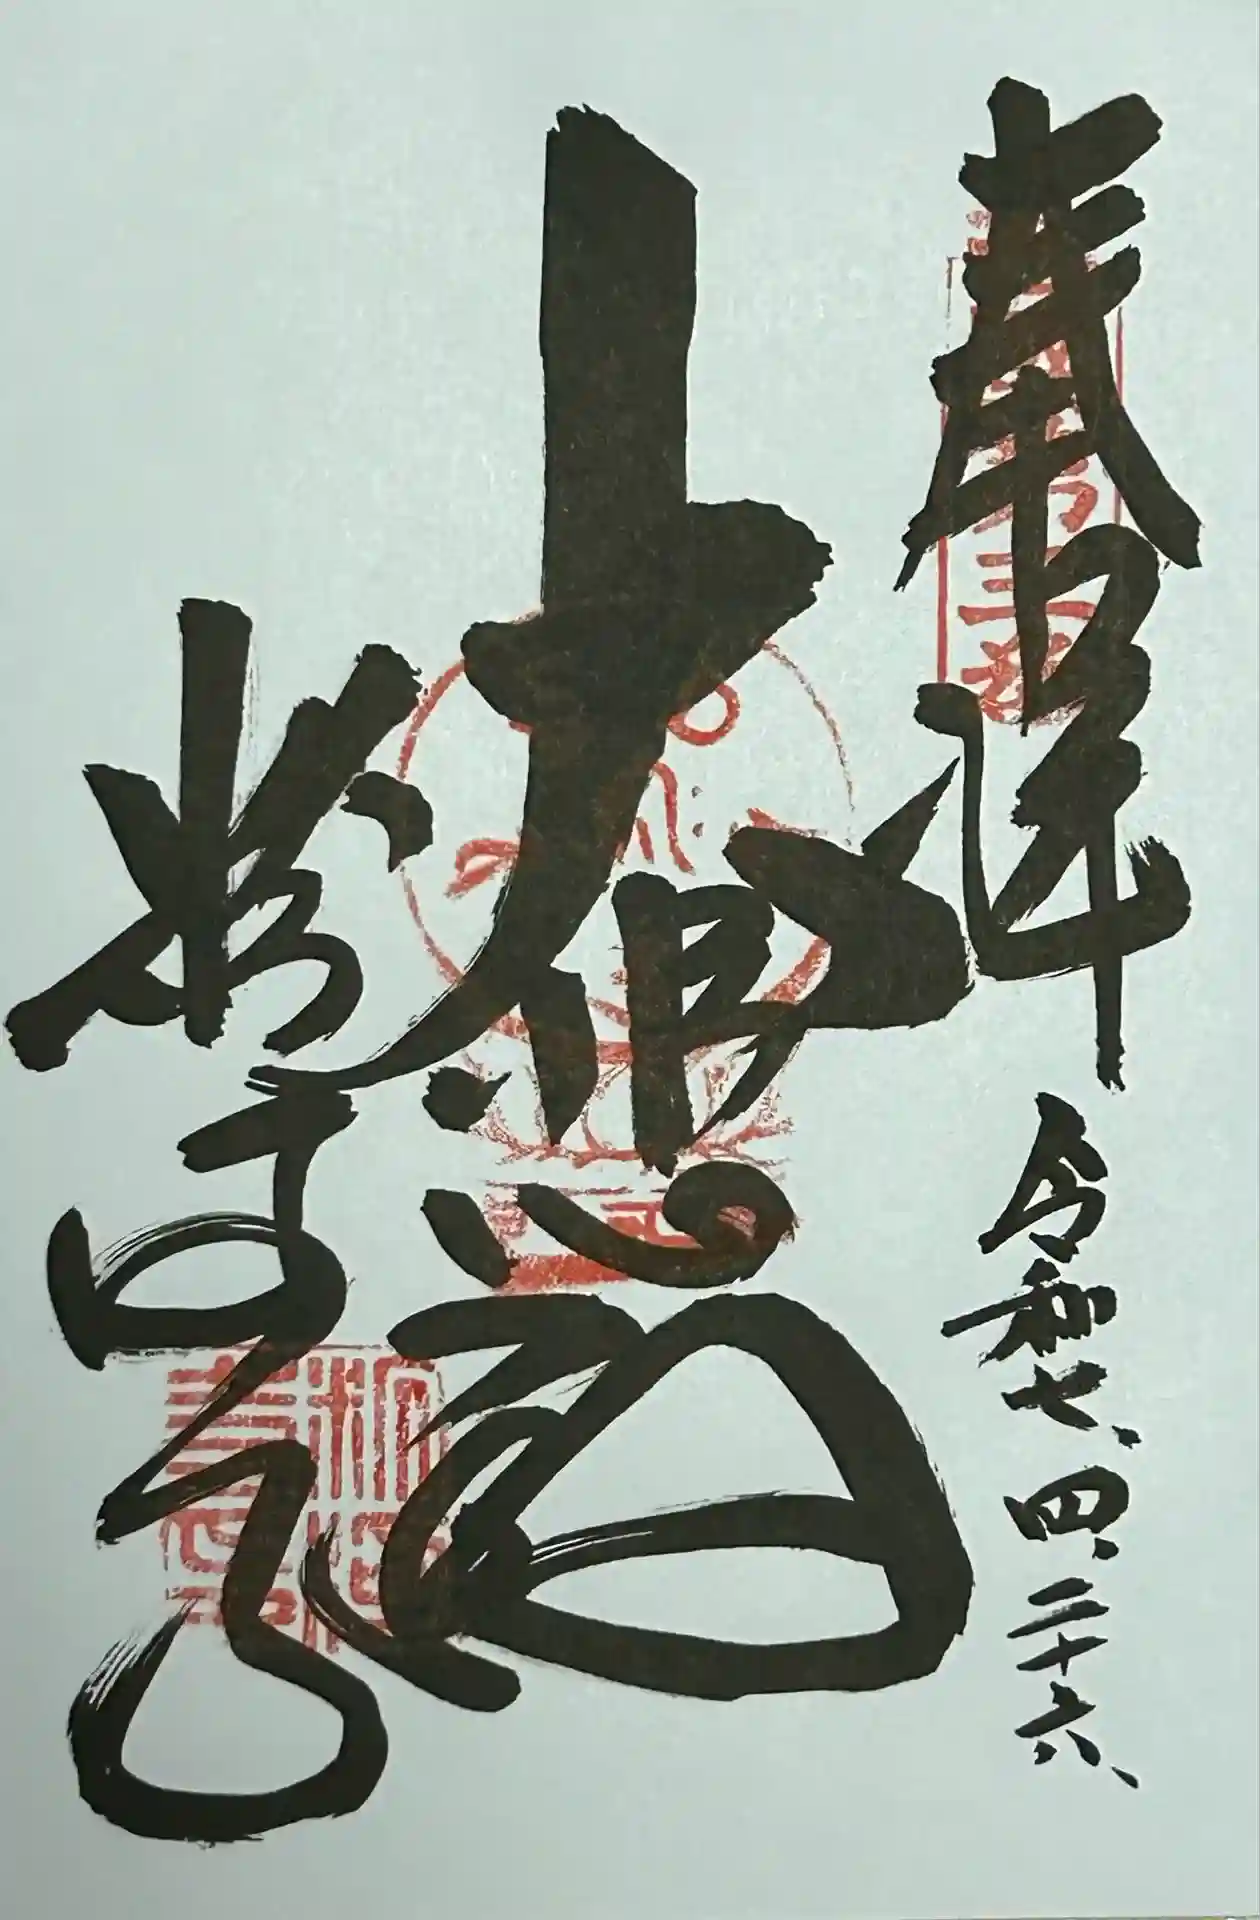 奉拝 令和七、四、二十六、
大悲殿
粉河寺